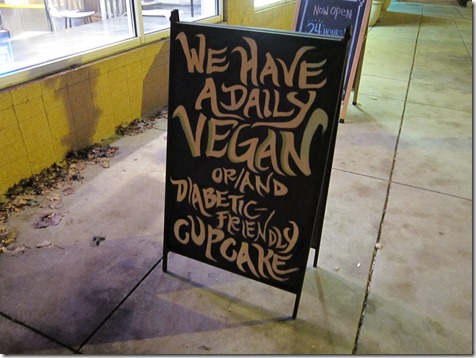 Now Open
24 Hours
WE HAVE
A DAILY
VEGAN
OR/AND
DIABETIC-
FRIENDLY
CUPCAKE